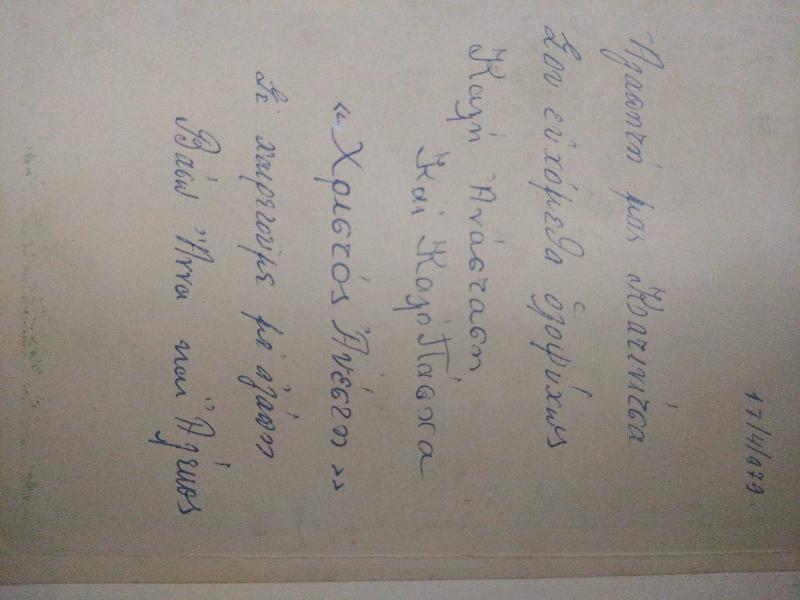 17/4/979.
Ἀγαπητή μας Κατινίτσα
Σου εὐχόμεθα ὁλοψύχως
Καλή Ἀνάσταση
Καί Καλό Πάσχα
«Χριστός Ἀνέστη»
Σέ χαιρετούμε μέ ἀγάπη
Βάσω Ἄννα και Ἀλέκος